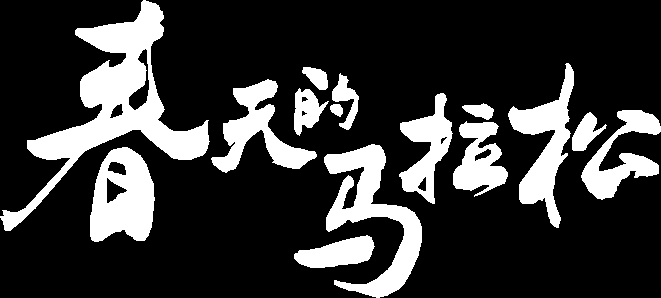 春天的马拉松